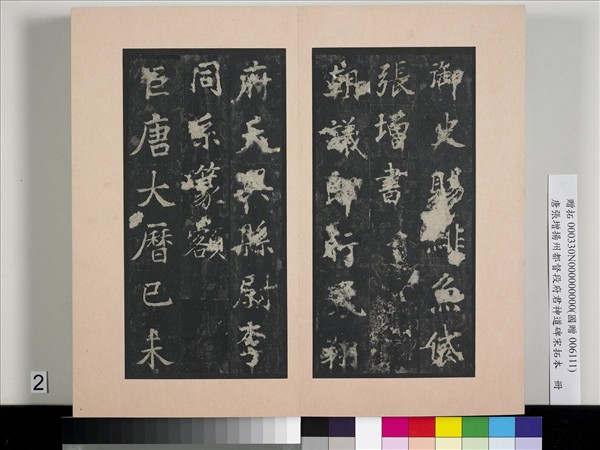 御史賜緋魚袋
張增書
朝議郎行鳳翔
府天興縣尉李
同系篆額
巨唐大曆己未
贈拓 000330N000000000(國贈 006111)
唐張增揚州都督段府君神道碑宋拓本 冊
2